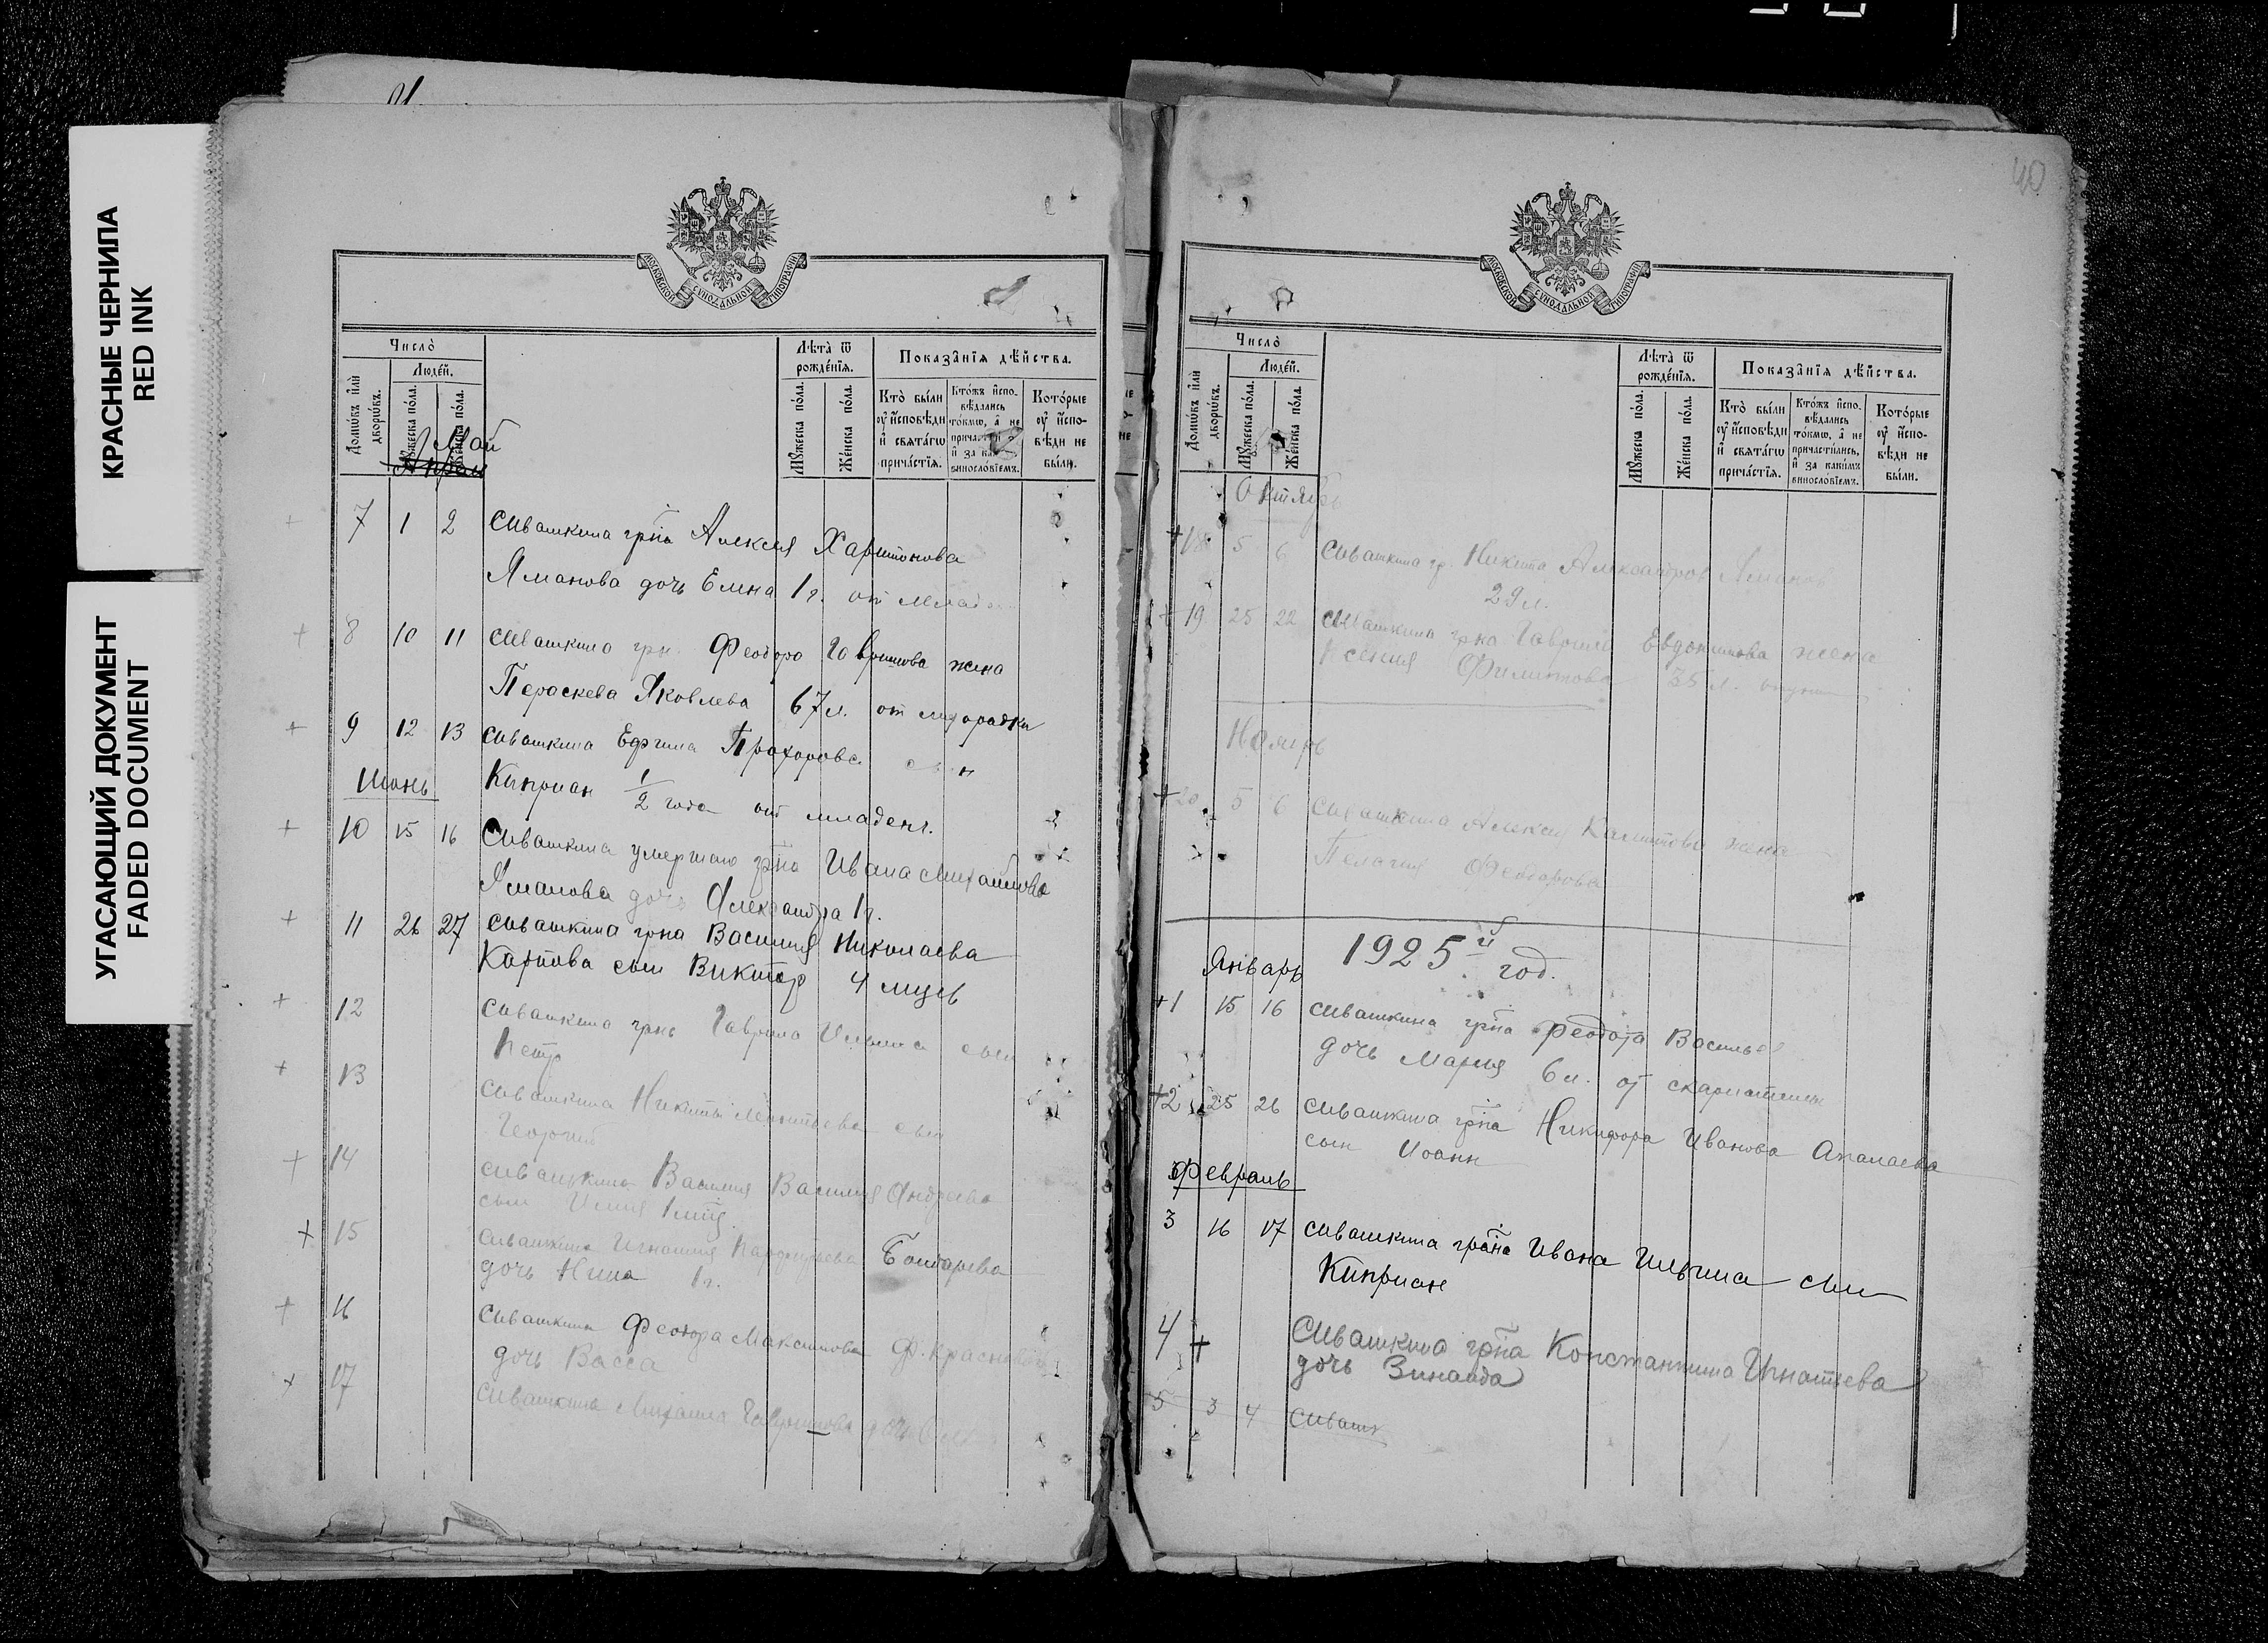 КРАСНЫЕ ЧЕРНИЛА
RED INK
УГАСАЮЩИЙ ДОКУМЕНТ
FADED DOCUMENT
МОСКОВСКОЙ СУНОДАЛЬНОЙ ТИПОГРАФІИ
Число̀
Людéй.
Лѣта̀ ѿ рождéнїѧ.
Показа̑нїѧ дѣ́йства.
Домѡ́въ и҆лѝ дворѡ́въ.
Мꙋ́жеска по́ла.
Же́нска по́ла.
Мꙋ́жеска по́ла.
Же́нска по́ла.
Кто̀ бы́ли ᲂу҆ и҆́сповѣди и҆ свята́гѡ прича́стїѧ.
Кото́рые ᲂу҆ и҆́сповѣди не бы́ли.
Май
Апрель
7 1 2 Сивашкина гр-на Алексея Харитонова
Яманова дочь Елена 1 г. от млад
8 10 11 Сивашкина гр-н. Феодора Гаврилова жена
Пераскева Яковлева 67 л. от лихорадки
9 12 13 Сивашкина Ефима Прохорова сын
Июнь
Киприан 1/2 года от младенч.
10 15 16 Сивашкина умершаго гр-на Ивана Михайлова
Яманова дочь Александра 1 г.
11 26 27 Сивашкина гр-на Василия Николаева
Карпова сын Виктор 4 мцев
12 Сивашкина гр-на Гаврила Ильина сын
Петр
13 Сивашкина Никиты сын
Георгий
14 Сивашкина Василия Василия Андреева
сын Илия 1 мц.
15 Сивашкина Игнатия Бондарева
дочь Нина 1 г.
16 Сивашкина Феодора Максимова Ф. Краснов
дочь Васса
17 Сивашкина Михаила Гаврилова дочь
40
МОСКОВСКОЙ СУНОДАЛЬНОЙ ТИПОГРАФІИ
Число̀
Людéй.
Лѣта̀ ѿ рождéнїѧ.
Показа̑нїѧ дѣ́йства.
Домѡ́въ и҆лѝ дворѡ́въ.
Мꙋ́жеска по́ла.
Же́нска по́ла.
Мꙋ́жеска по́ла.
Же́нска по́ла.
Кто̀ бы́ли ᲂу҆ и҆́сповѣди и҆ свята́гѡ прича́стїѧ.
Кто́жъ и҆сповѣдались то́кмѡ, а҆ не причастились, и҆ за каки́мъ винословїемъ.
Кото́рые ᲂу҆ и҆́сповѣди не бы́ли.
Октябрь
18 5 6 Сивашкина гр. Никита Александров Яманов
29 л.
19 25 22 Сивашкина гр-на Гаврила Евдокимова жена
Ксения Филиппова 35 л.
Ноябрь
20 5 6 Сивашкина Алексея жена
Пелагия Феодорова
1925й год.
Январь
1 15 16 Сивашкина гр-на Феодота Васильев
дочь Мария 6 л. от скарлатины
2 25 26 Сивашкина гр-на Никифора Иванова Апалаева
сын Иоанн
Февраль
3 16 17 Сивашкина гр-на Ивана Ильина сын
Киприан
4 Сивашкина гр-на Константина Игнатьева
дочь Зинаида
5 3 4 Сиваш